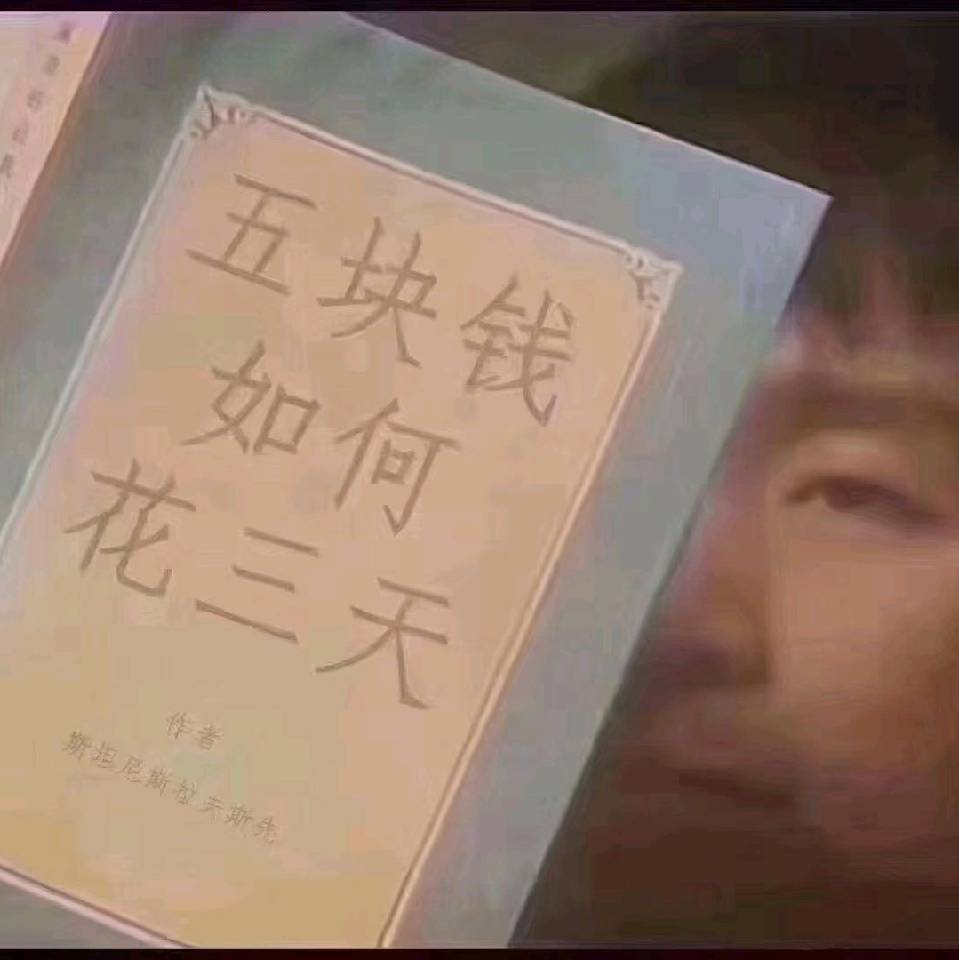 五块钱
如何
花三天
作者
斯坦尼斯拉夫斯先